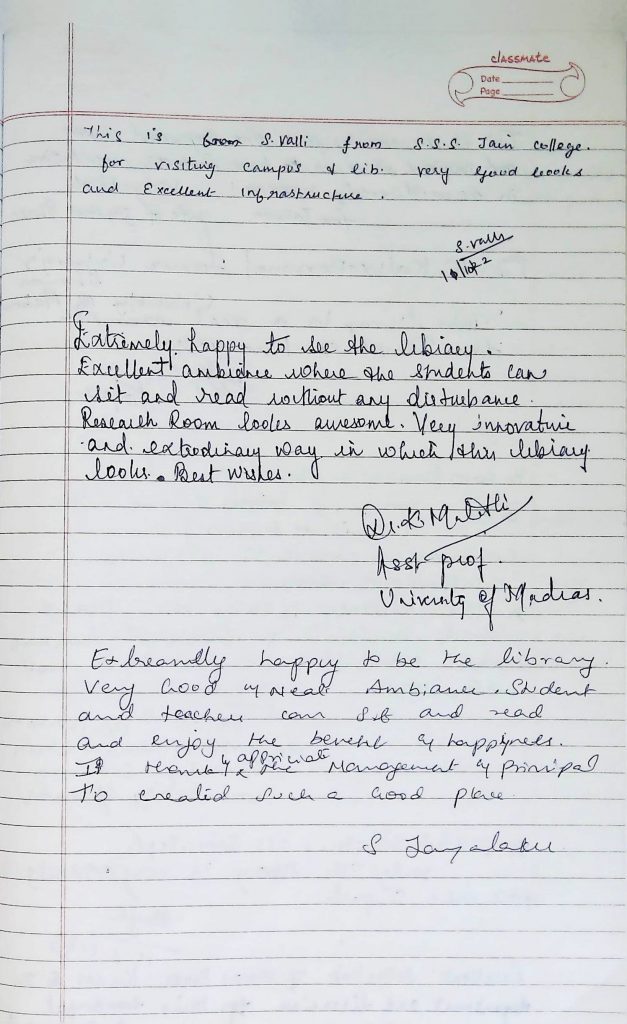 classmate
Date
Page
This is S. Valli from S.S.S. Jain college.
for visiting campus & lib. very good looks
and Excellent infrastructure.
S. Valli
Extremely happy to see the library.
Excellent ambience where the students can
sit and read without any disturbance.
Research Room looks awesome. Very innovative
and extrodinary way in which this library
looks. Best wishes.
Asst prof.
University of Madras.
Extreamlly happy to be the library.
Very Good & Neat Ambiance. Student
and teacher can sit and read
and enjoy the benefit & happyness.
I thank & appriciate the Management & principal
To created such a Good place
S